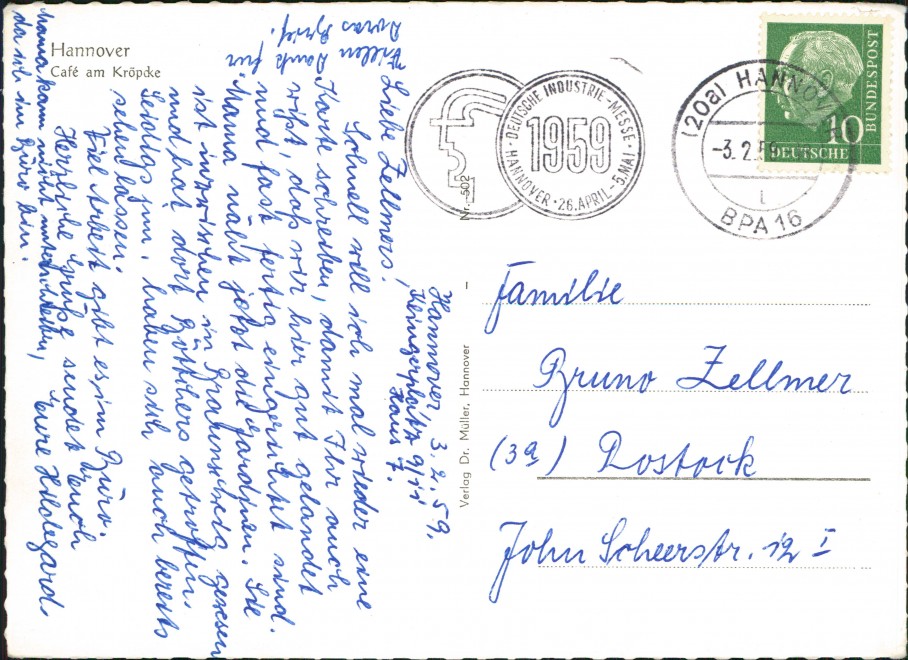 Hannover
Café am Kröpcke
Vielen Dank für
Doras Brief.
Hannover, 3.2.59.
9/11
Haus 7.
Liebe Zellmers!
Schnell will ich mal wieder eine
Karte schreiben, damit Ihr auch
wißt, daß wir hier gut gelandet
und fast fertig eingerichtet sind.
Mama näht jetzt die Gardinen. Sie
ist inzwischen in Braunschweig gewesen
und hat dort Böttchers getroffen.
Leidigs jun. haben sich auch bereits
sehen lassen.
Viel Arbeit gibt es im Büro.
Herzliche Grüße sendet Euch
Eure Hildegard.
Mama kann nicht unterschreiben,
da ich im Büro bin.
Nr. 502
DEUTSCHE INDUSTRIE-MESSE
1959
HANNOVER · 26. APRIL - 5. MAI
(20a) HANNOV
-3.2.5
BPA 16
10
DEUTSCHE
BUNDESPOST
Verlag Dr. Müller, Hannover
Familie
Bruno Zellmer
(3a) Rostock
John Scheerstr. 12 I